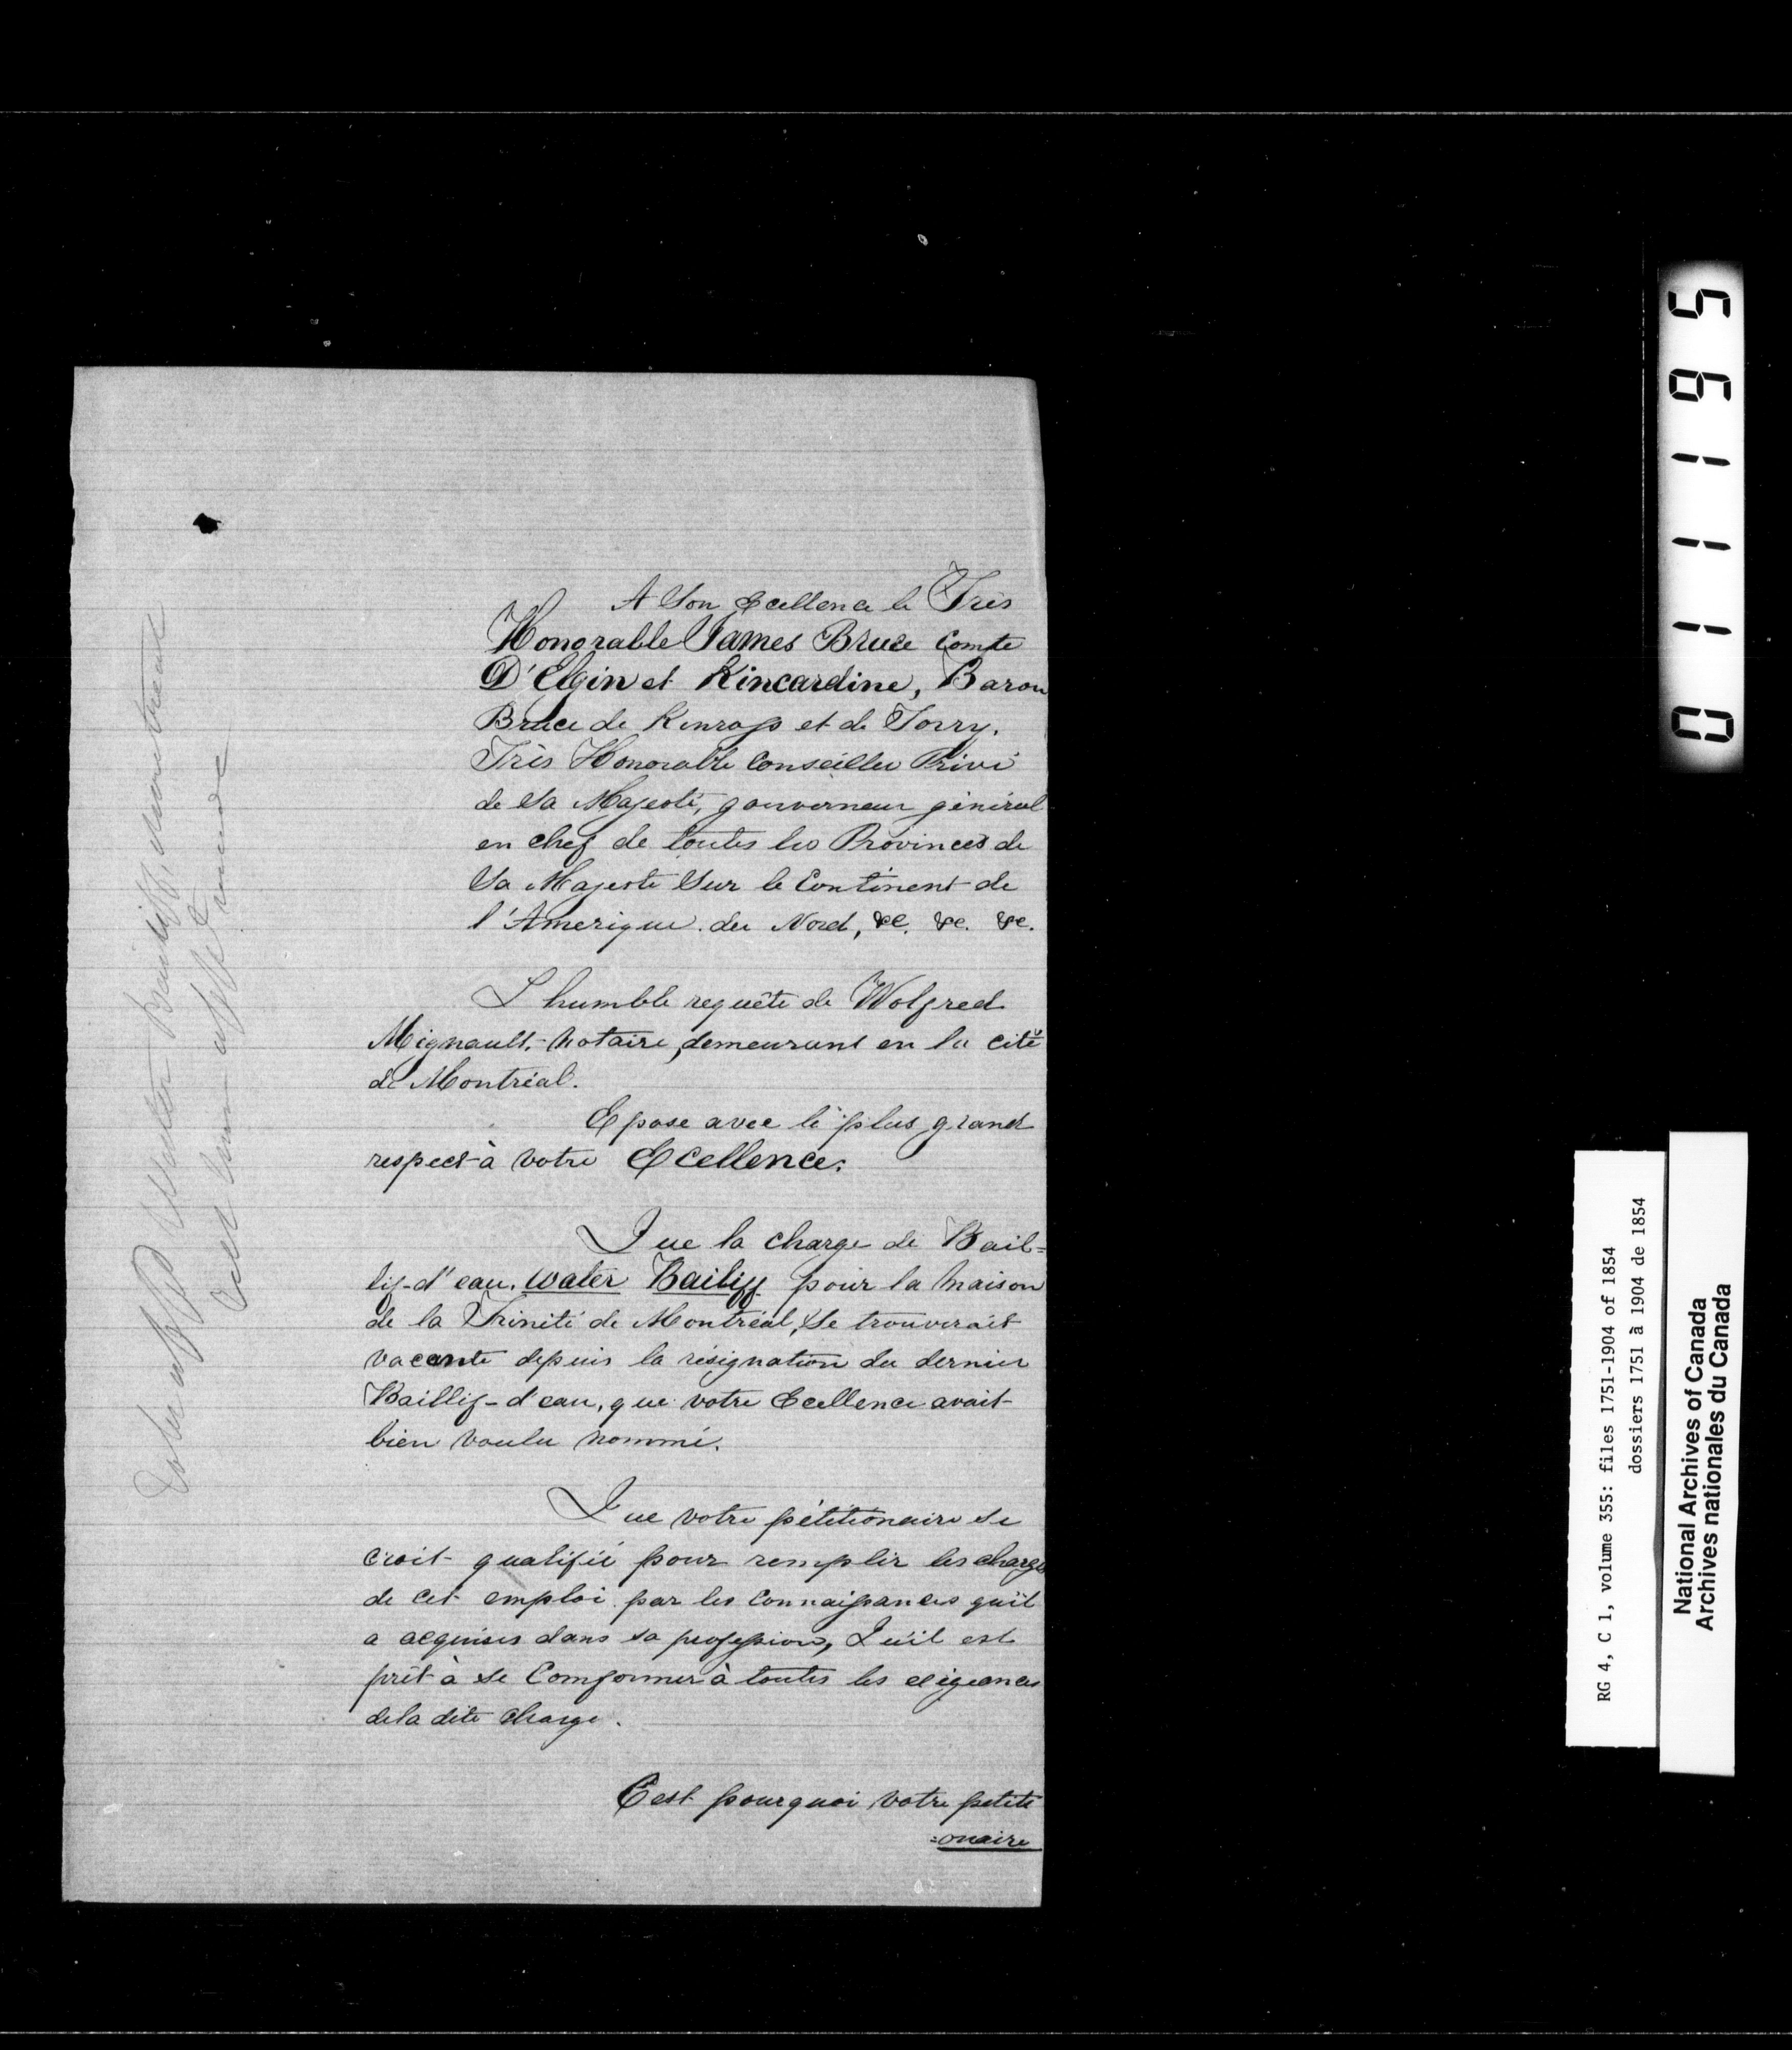 A Son Ecellence le Très
Honorable James Bruce Comte
D'Elgin et Kincardine, Baron
Bruce de Kinross et de Torry.
Très Honorable Conseiller Privé
de Sa Majesté, gouverneur général
en chef de toutes les Provinces de
Sa Majesté Sur le Continent de
l'Amerique du Nord, &c. &c. &c.
L humble requête de Wolfred
Mignault, notaire, demeurant en la cité
de Montréal.
Epose avec le plus grand
respect à votre Ecellence.
Que la charge de Bail=
lif-d'eau, water Bailiff pour la maison
de la Trinité de Montréal, Se trouverait
vacante depuis la résignation du dernier
Baillif-d'eau, que votre Ecellence avait
bien voulu nommé.
Que votre pétitionaire se
croit qualifié pour remplir les charges
de cet emploi par les Connaissances qu'il
a acquises dans sa profession, Qu'il est
prêt à se Comformer à toutes les exigeances
de la dite charge.
C'est pourquoi votre petiti
=onaire
Water Bailiff
0111195
RG 4, C 1, volume 355: files 1751-1904 of 1854
dossiers 1751 à 1904 de 1854
National Archives of Canada
Archives nationales du Canada